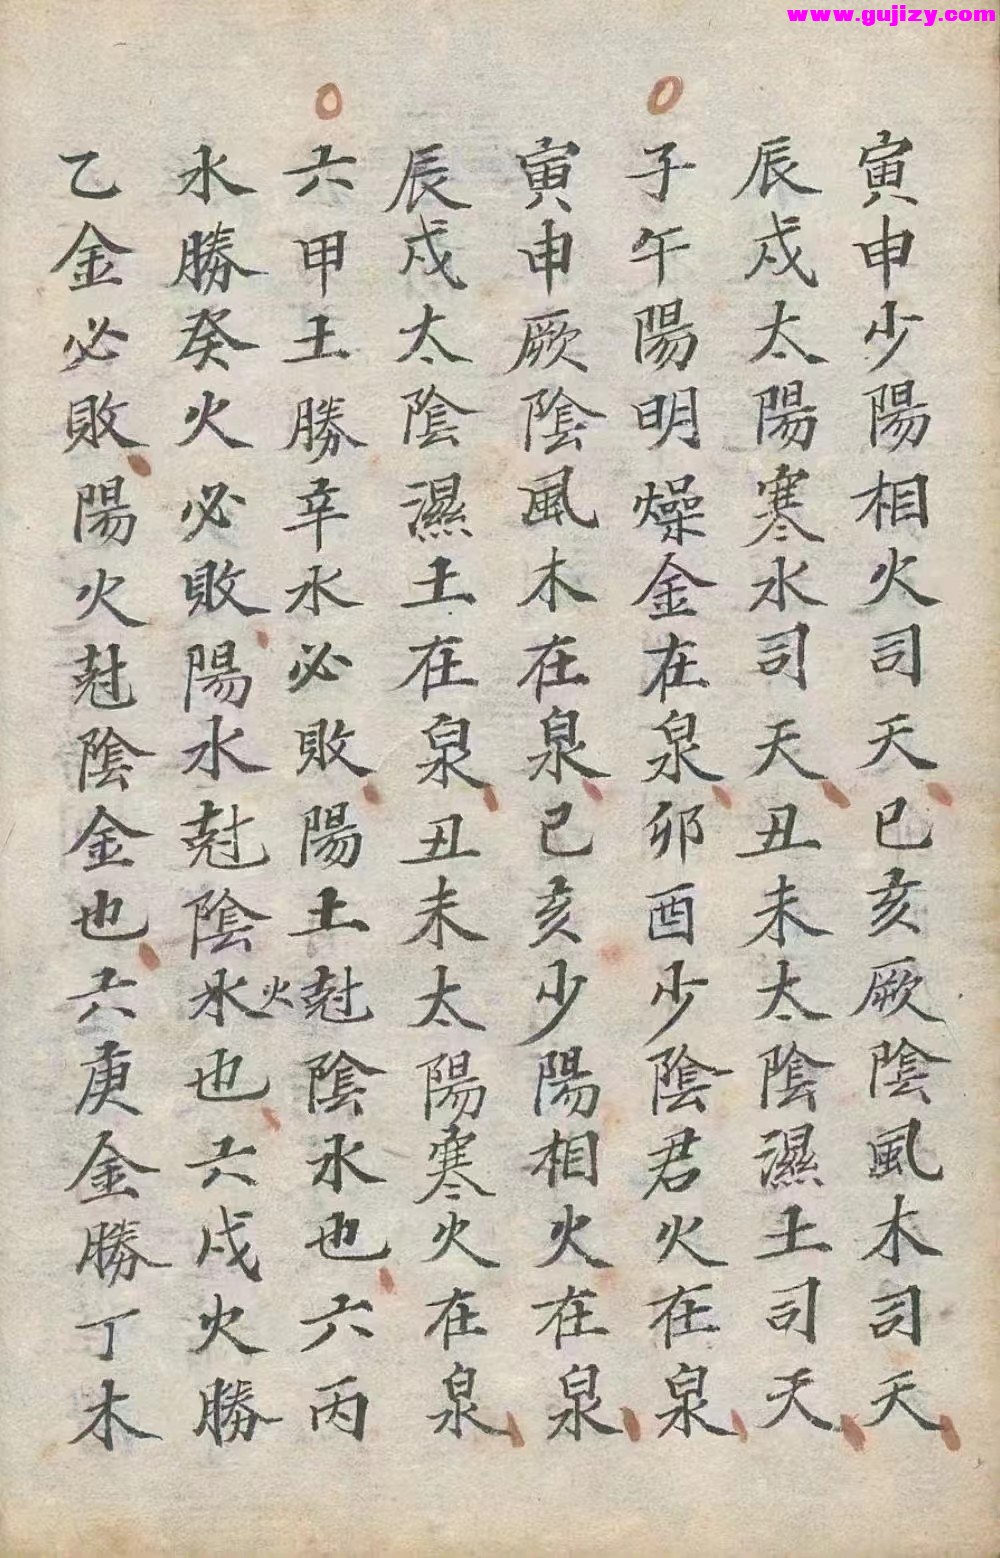 www.gujizy.com
寅申少陽相火司天巳亥厥陰風木司天
辰戌太陽寒水司天丑未太陰濕土司天
子午陽明燥金在泉卯酉少陰君火在泉
寅申厥陰風木在泉巳亥少陽相火在泉
辰戌太陰濕土在泉丑未太陽寒火在泉
六甲土勝辛水必敗陽土尅陰水也六丙
水勝癸火必敗陽水尅陰水火也六戊火勝
乙金必敗陽火尅陰金也六庚金勝丁木